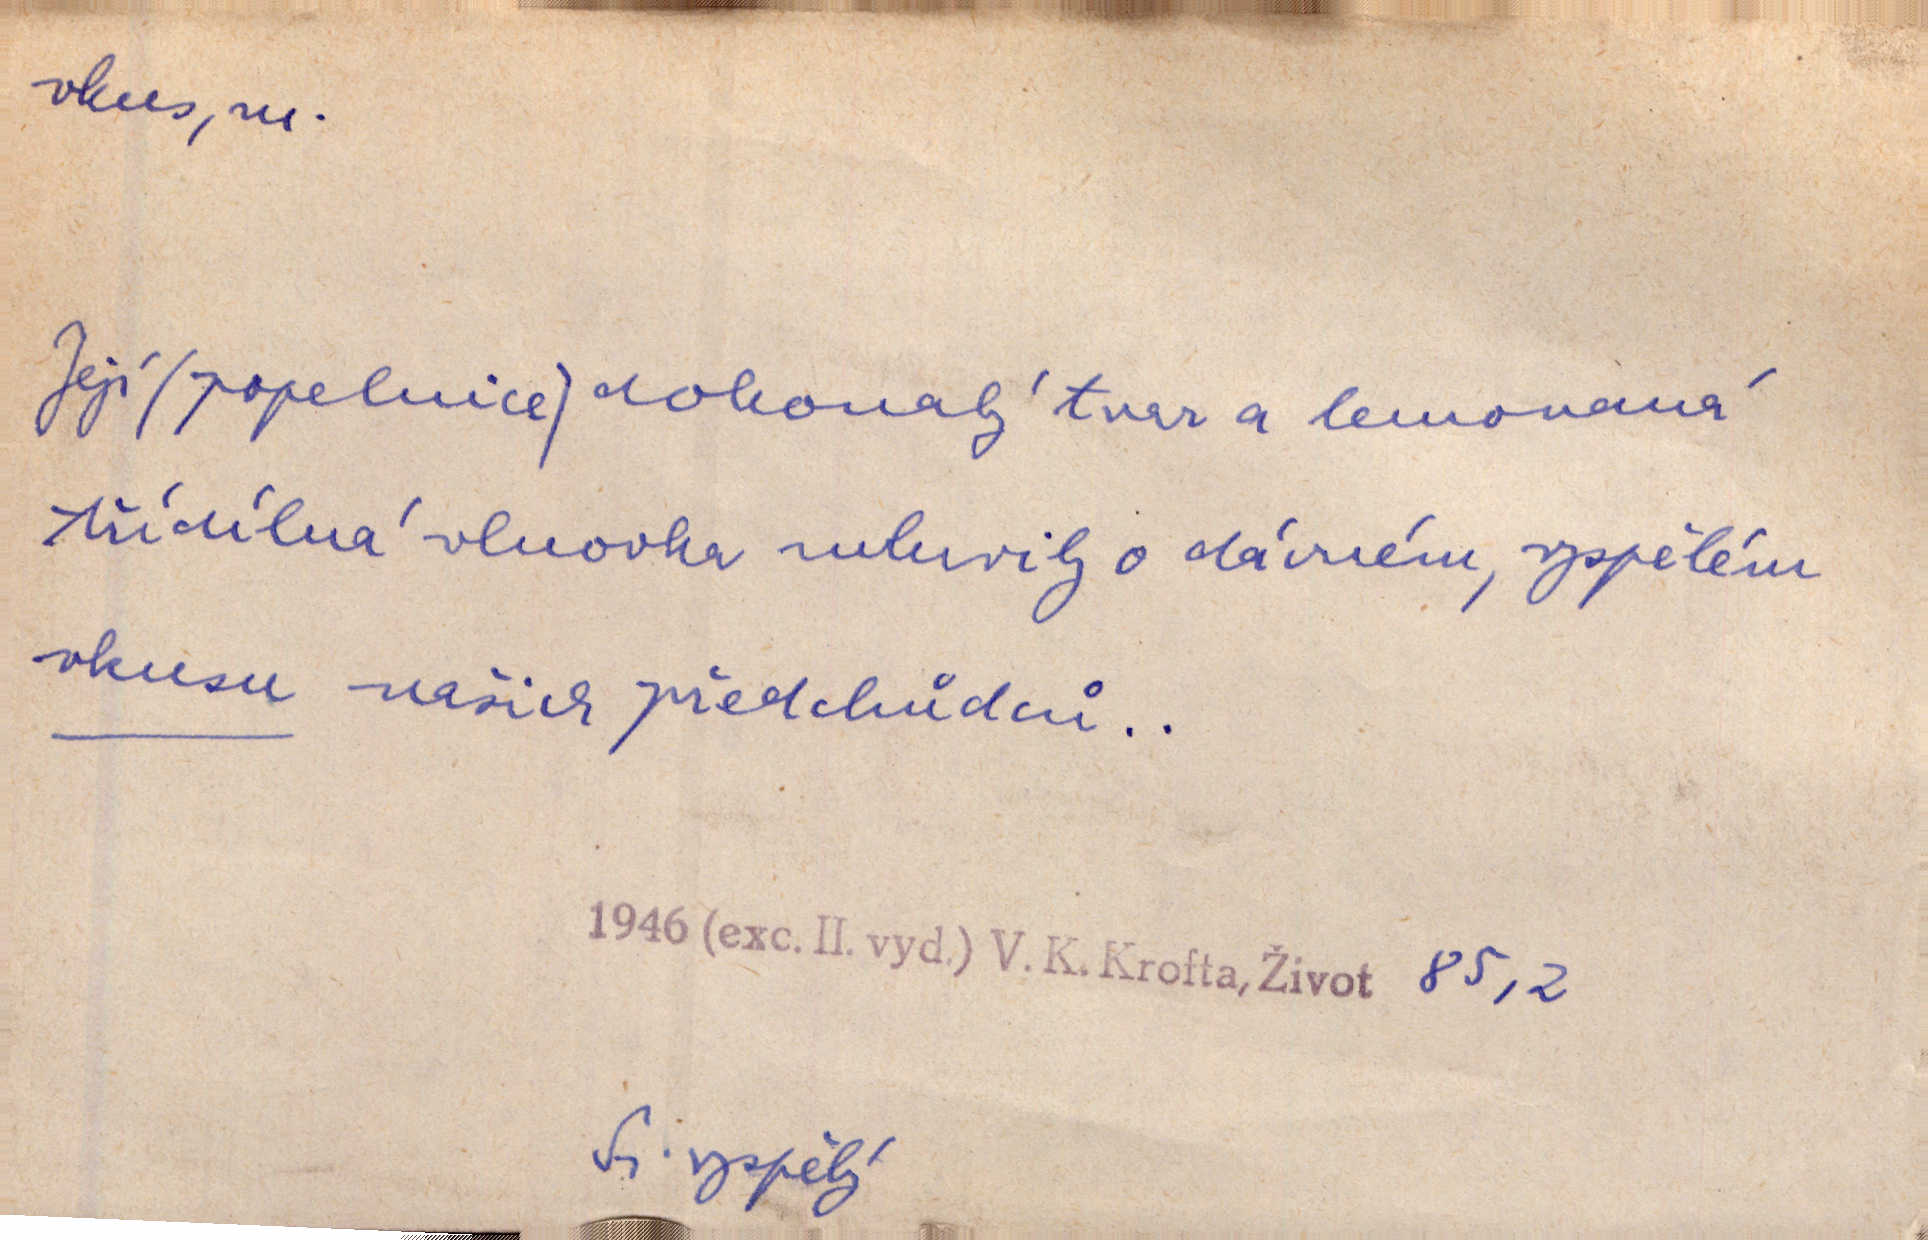 vkus, m.
Její (popelnice) dokonalý tvar a lemovaná
třídílná vlnovka mluvily o dávném, vyspělém
vkusu našich předchůdců..
1946 (exc. II. vyd.) V. K. Krofta, Život 85,2
Sr. vyspělý